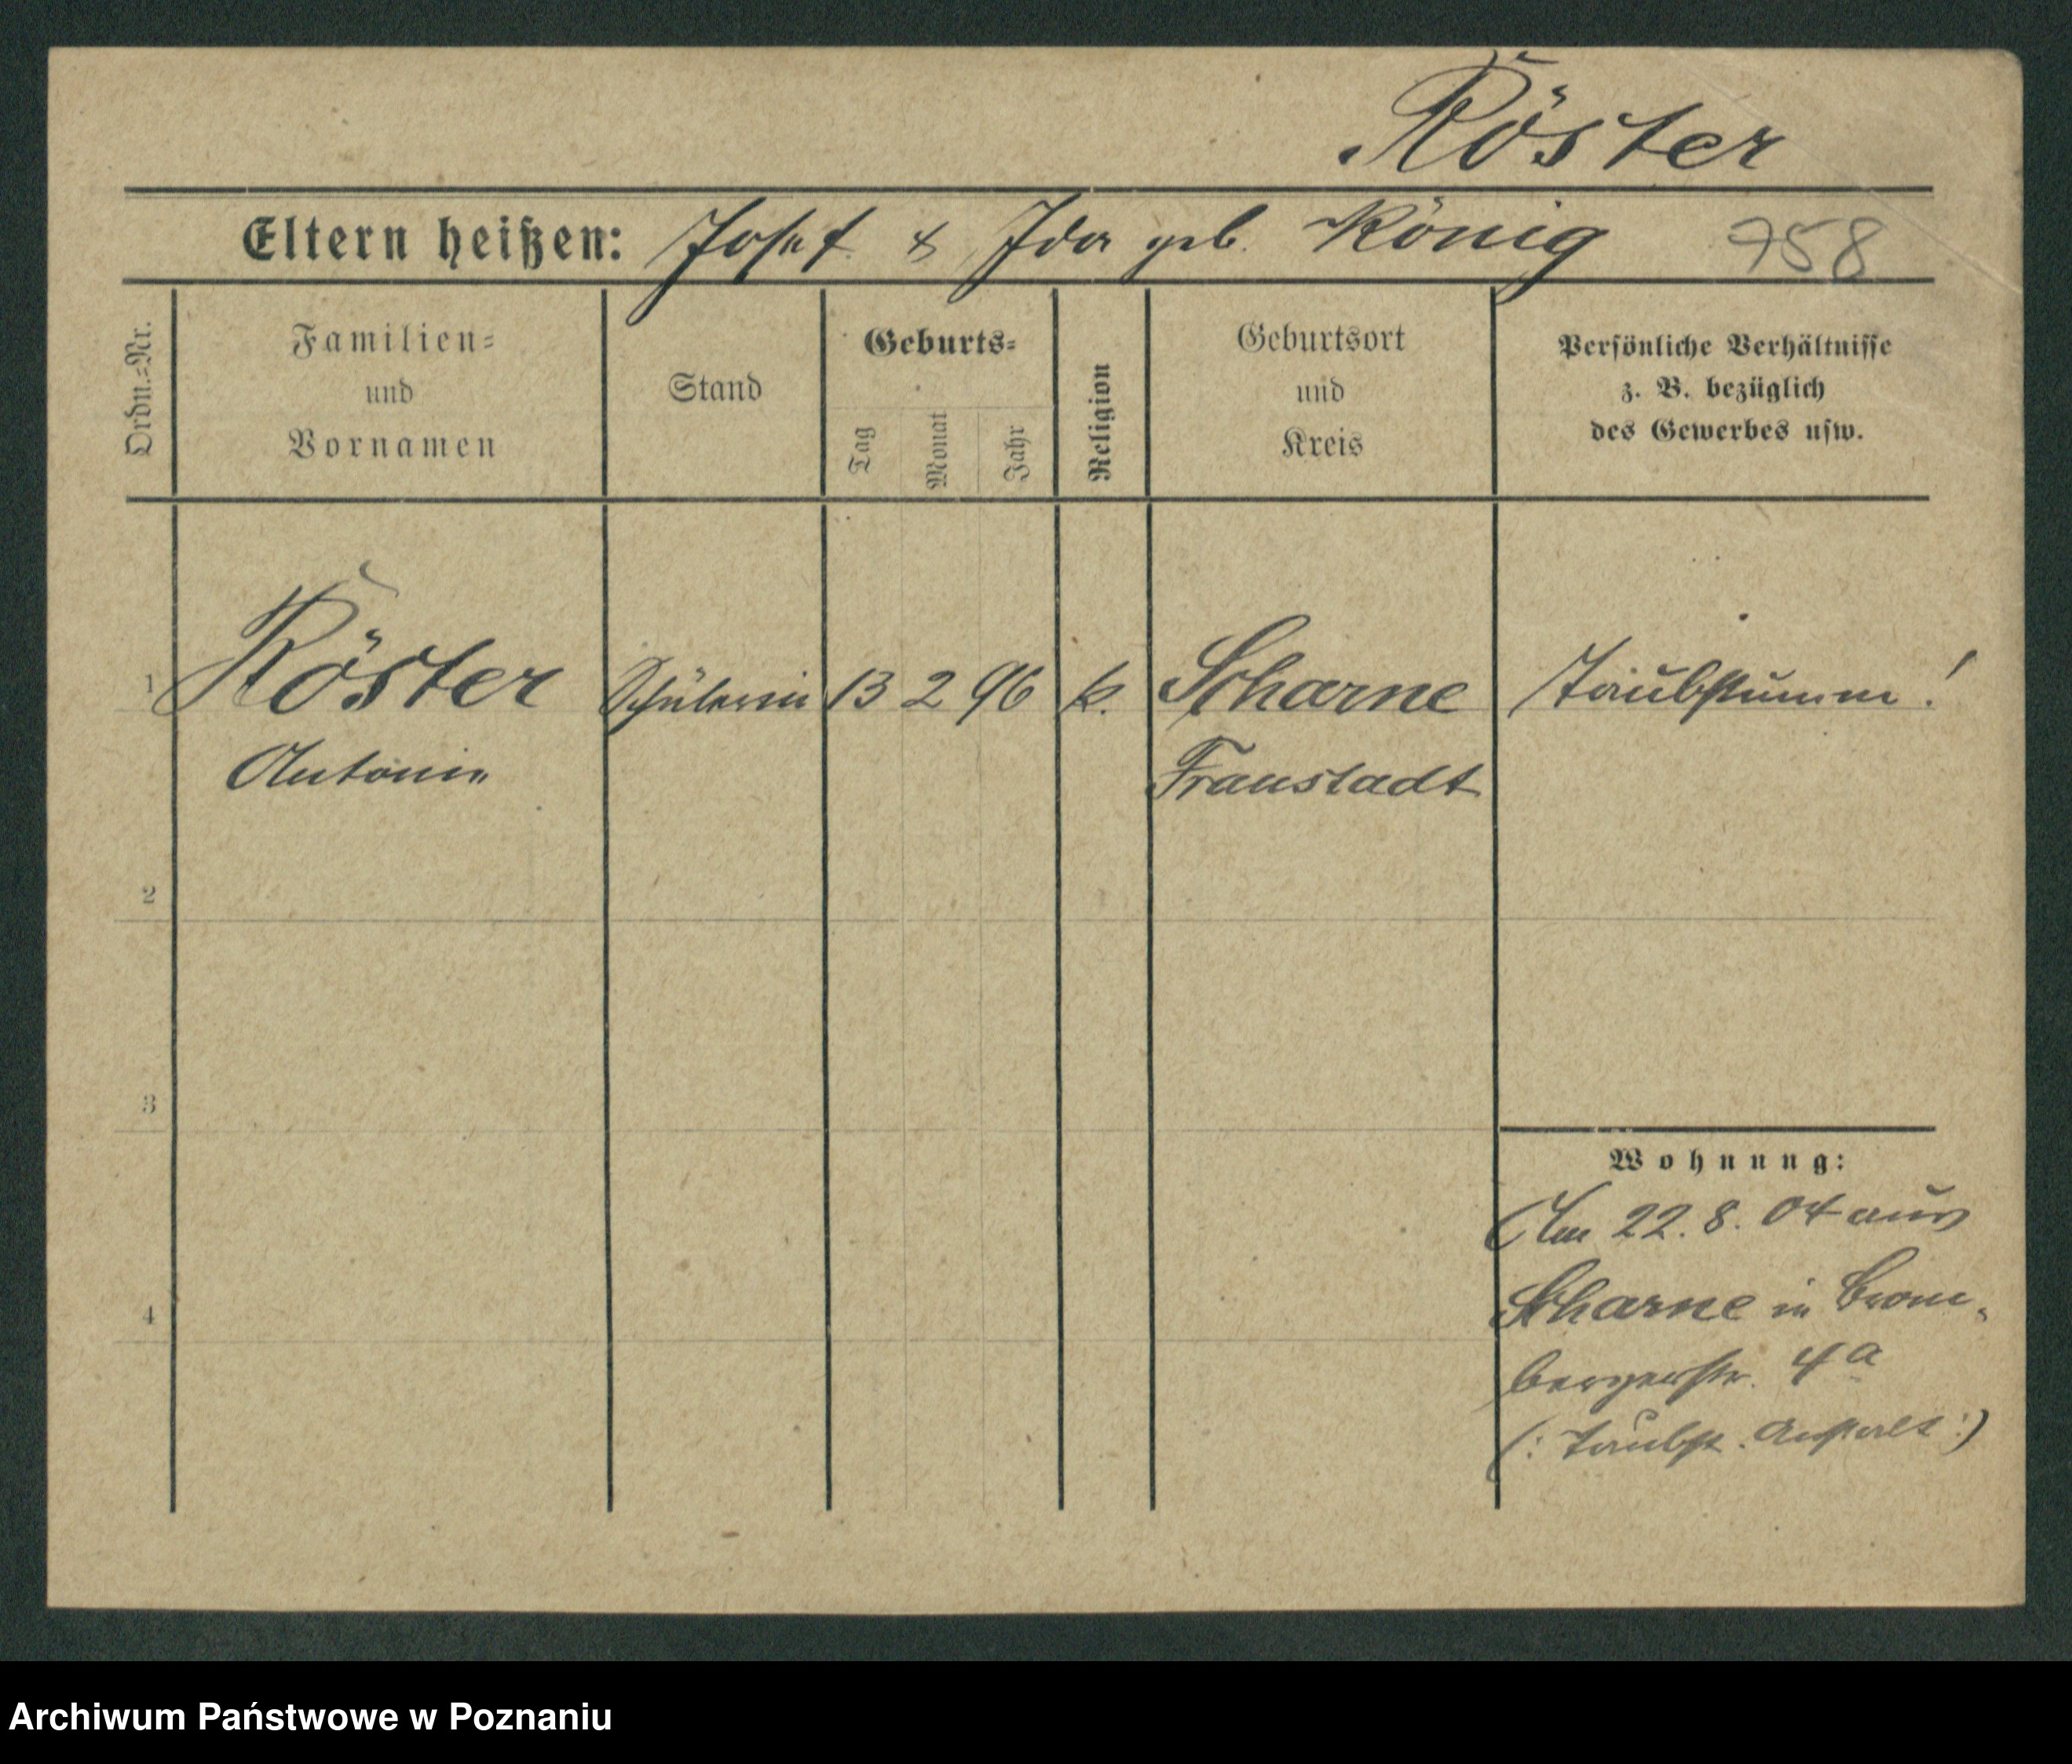 Röster
Eltern heißen: Josef & Ida geb. König 758
Ordn.=Nr.
Familien=
und
Vornamen
Stand
Geburts=
Tag
Monat
Jahr
Religion
Geburtsort
und
Kreis
Persönliche Verhältnisse
z. B. bezüglich
des Gewerbes usw.
1 Röster Schülerin 13 2 96 k. Scharne Taubstumm!
Antonie Fraustadt
2
3
Wohnung:
Am 22. 8. 04 aus
Scharne in Brom-
4
bergerstr. 4a
(: Taubst. Anstalt :)
Archiwum Państwowe w Poznaniu